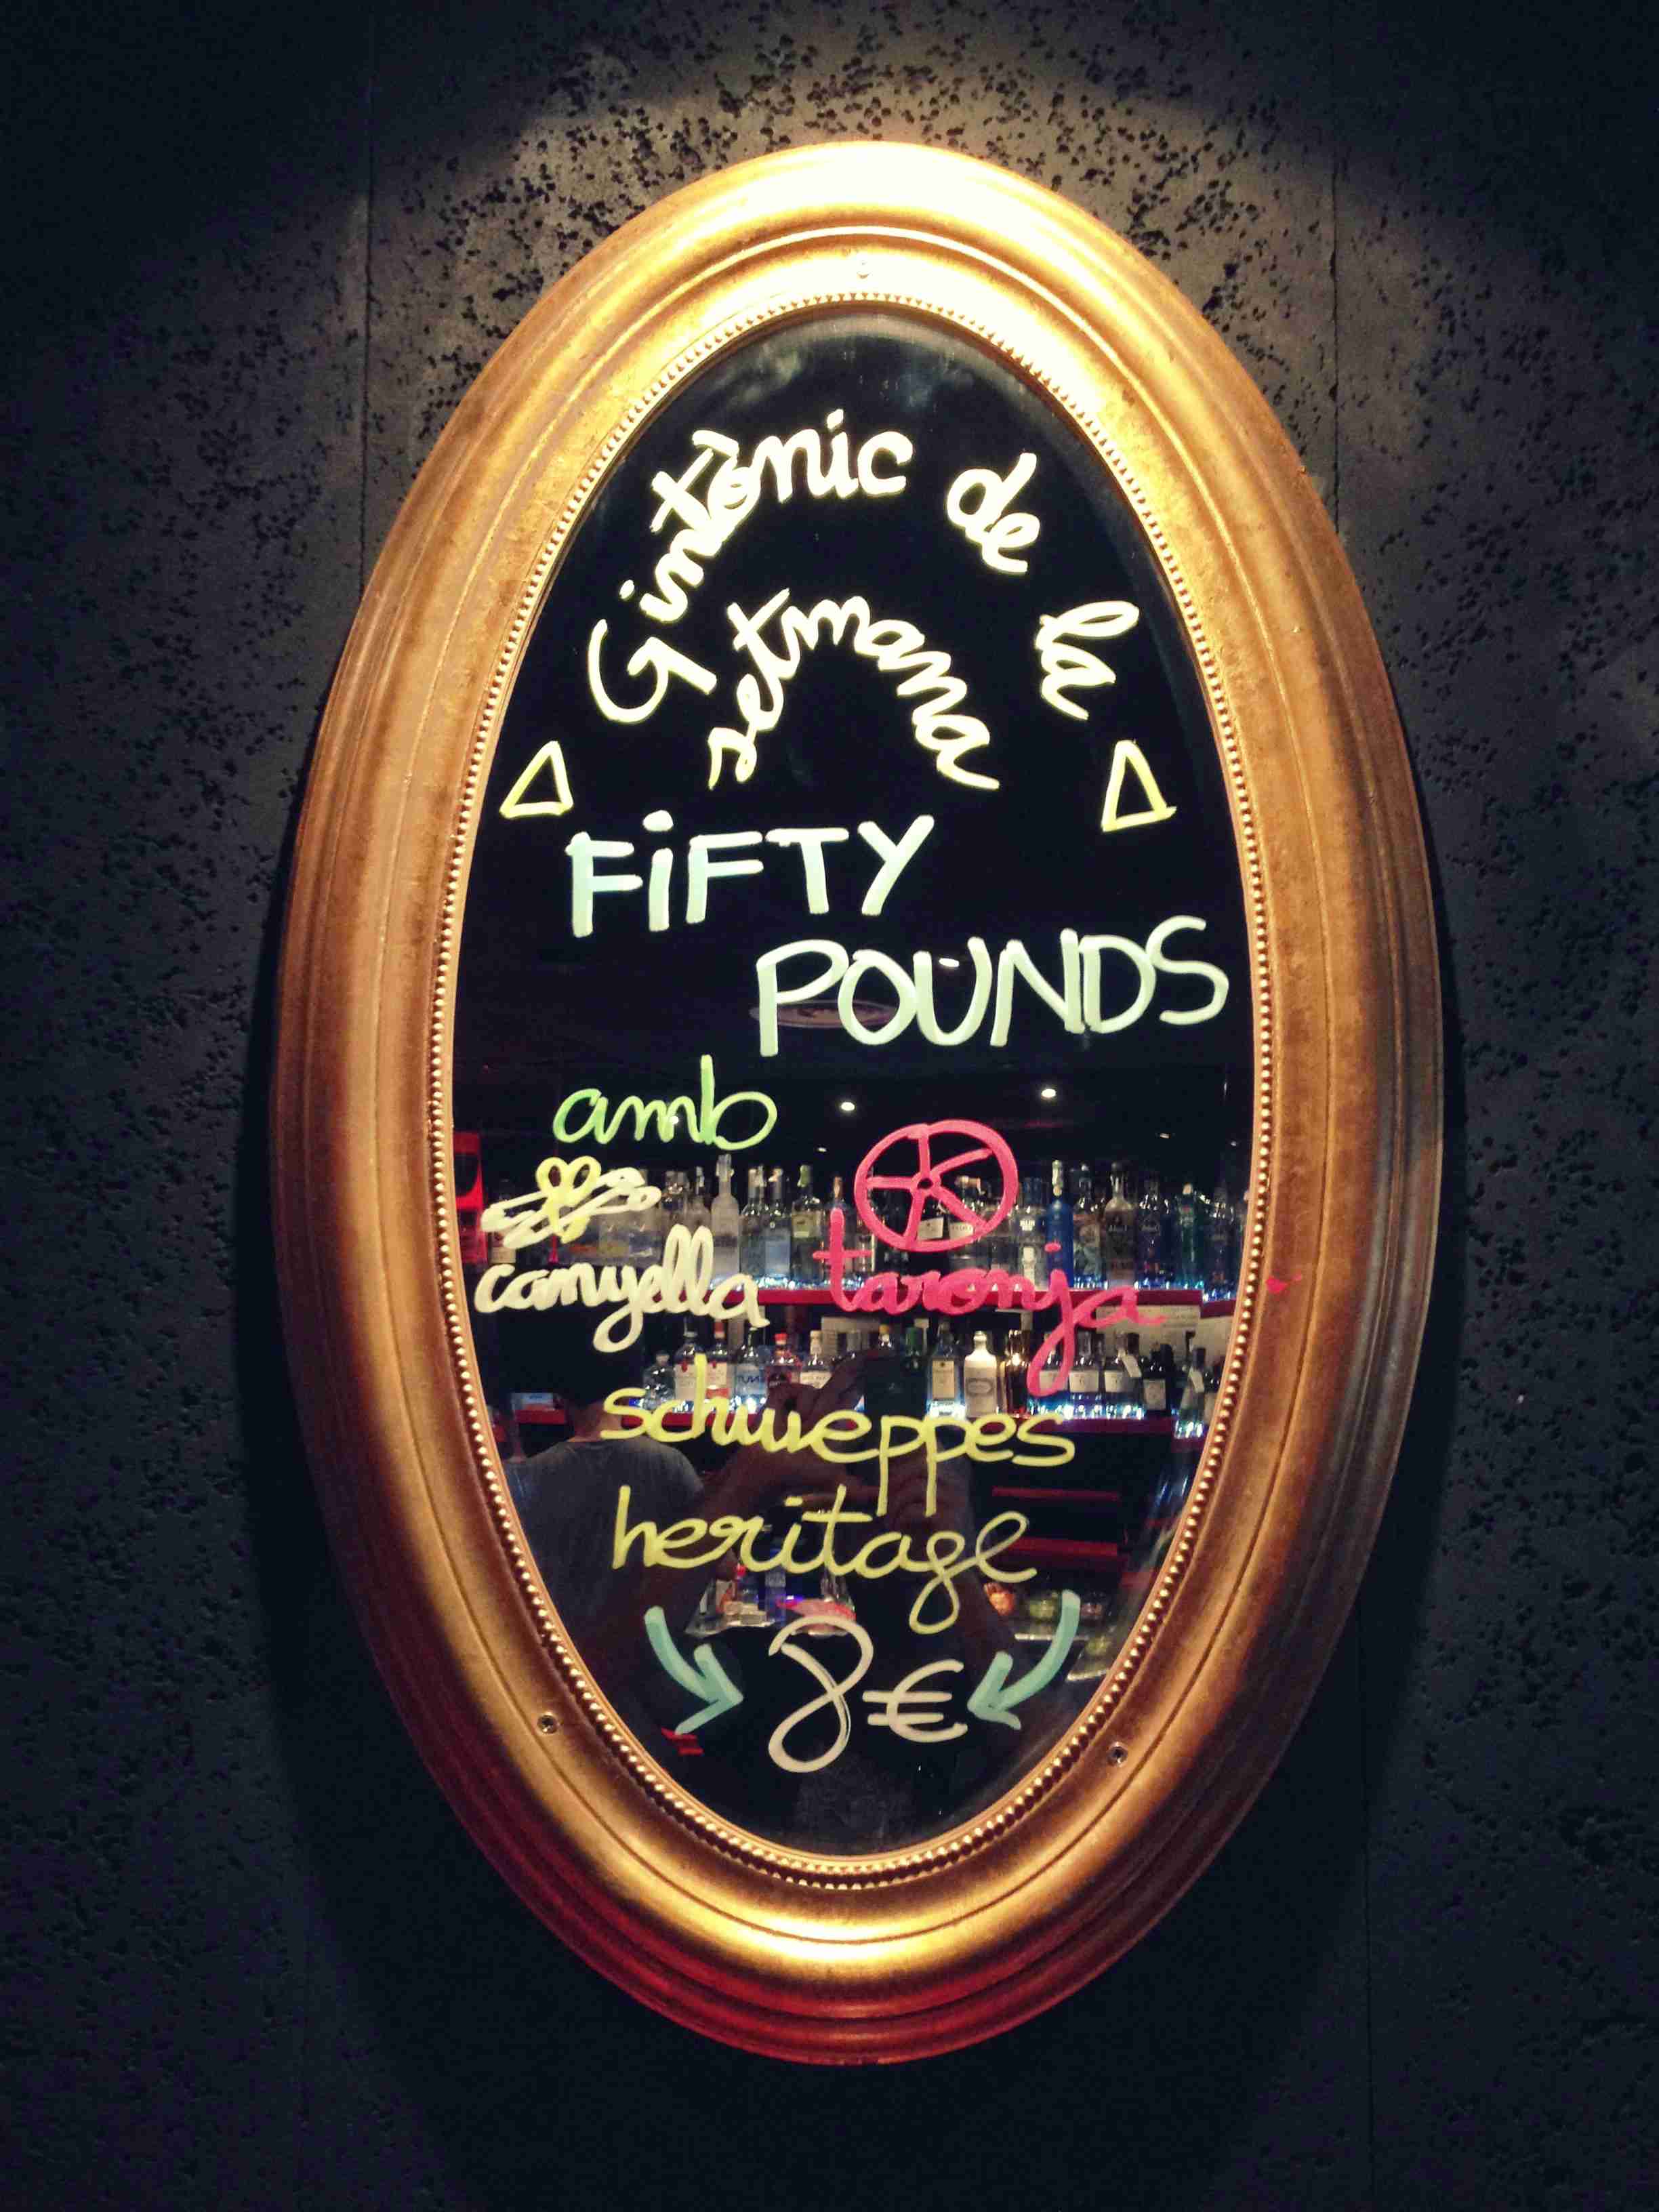 Gintònic de la
setmana
FIFTY
POUNDS
amb
canyella taronja
schweppes
heritage
8€